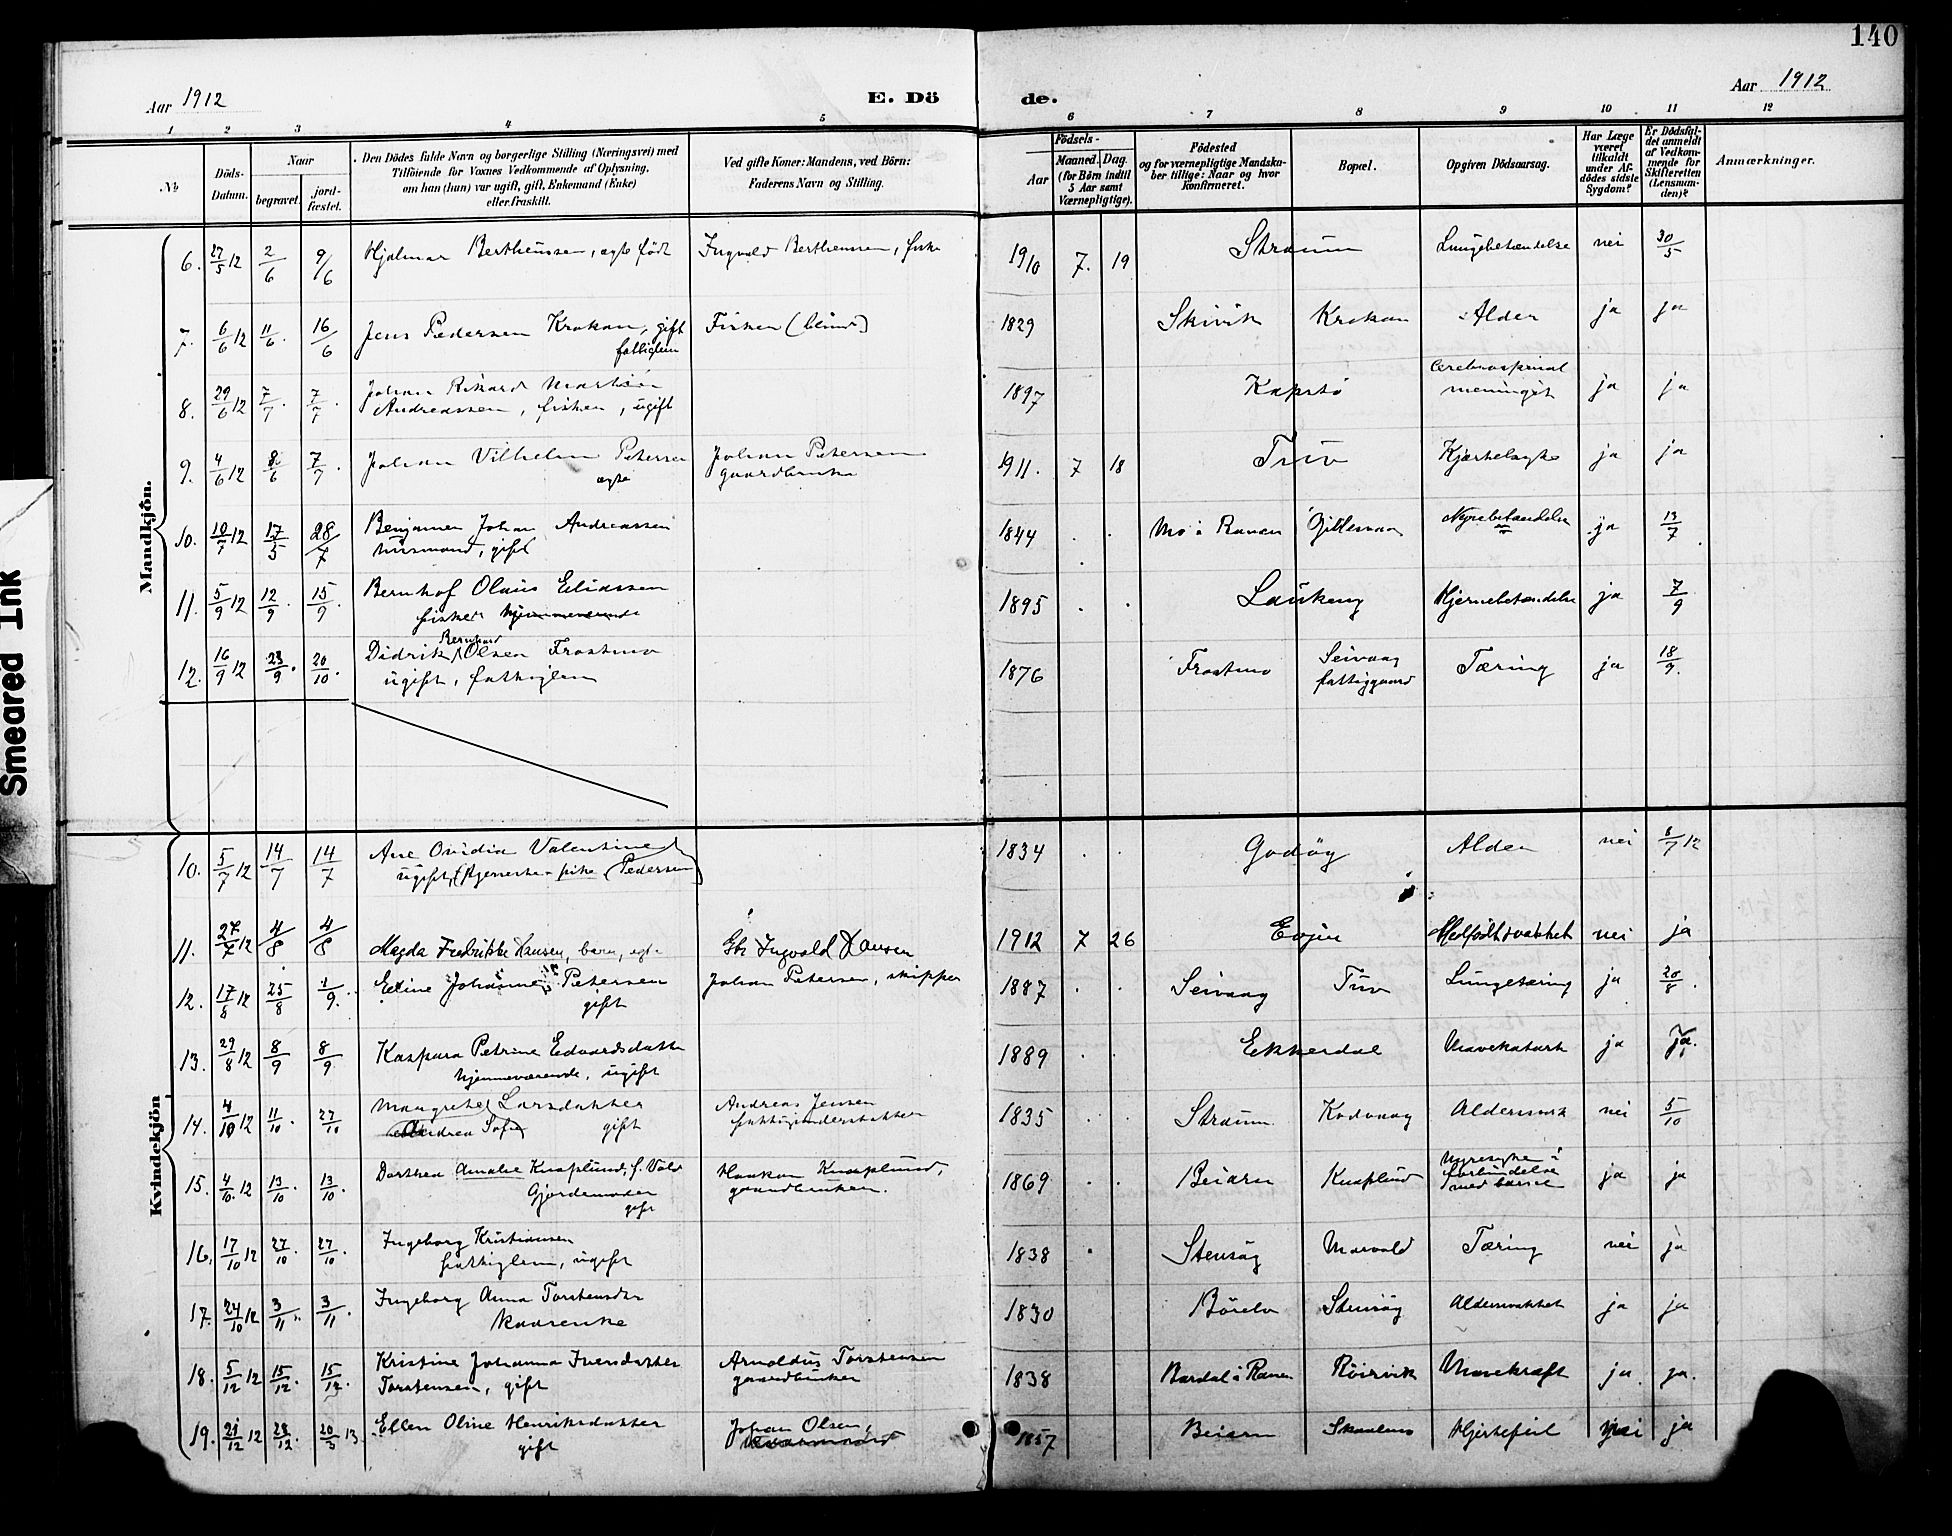 140
Aar 1912
E. Dö
de.
Aar 1912
1 2 3 4 5 6 7 8 9 10 11 12
№
Döds-
Datum.
Naar
begravet.
jord-
fæstet.
Den Dödes fulde Navn og borgerlige Stilling (Næringsvei) med
Tilföiende for Voxnes Vedkommende af Oplysning,
om han (hun) var ugift, gift, Enkemand (Enke)
eller fraskilt.
Ved gifte Koner: Mandens, ved Börn:
Faderens Navn og Stilling.
Födsels-
Aar
Maaned. Dag.
(for Börn indtil
5 Aar samt
Værnepligtige).
Födested
og for værnepligtige Mandska-
ber tillige: Naar og hvor
konfirmeret.
Bopæl.
Opgiven Dödsaarsag.
Har Læge
været
tilkaldt
under Af-
dödes sidste
Sygdom?
Er Dödsfal-
det anmeldt
af Vedkom-
mende for
Skifteretten
(Lensman-
den)?
Anmærkninger.
Mandkjön.
6. 27/5 12 2/6 9/6 Hjalmar Bertheussen, ægte född Ingvald Bertheussen, fisker 1910 7. 19 Straum Lungebetændelse nei 30/5
7. 6/6 12 11/6. 16/6 Jens Pedersen Krokan, gift Fisker (blind) 1829 Skivik Krokan Alder ja ja
fattiglem
8. 29/6 12 7/7. 7/7. Johan Rikard Martin 1897 Kapstø Cerebrospinal ja ja
Andreassen, fisker, ugift meningit
9. 4/6 12 8/6 7/7. Johan Vilhelm Petersen Johan Petersen 1911. 7 18 Tuv Kjertelsyke ja ja
ægte gaardbruker
10. 10/7 12 17/5 28/7 Benjamin Johan Andreassen 1844 Mo i Ranen Gillesvaag Nyrebetændelse ja 13/7
husmand, gift
11. 5/9 12 12/9. 15/9. Bernhof Olaus Eliassen 1895 Laukeng Hjernebetændelse ja 7/9
fisker hjemmeværende
Bernhard
12. 16/9 12 23/9. 20/10. Didrik Olsen Frostmo 1876 Frostmo Seivaag Tæring ja 18/9.
ugift, fattiglem fattiggaard
Kvindekjön
10. 5/7 12 14/7 14/7 Ane Ovidia Valentine 1834 Godøy Alder nei 8/7 12
ugift, tjenestepike (Pedersen)
11. 27/7 12 4/8 4/8 Magda Fredrikke Hansen, barn, egte Gbr Ingvald Hansen 1912 7 26 Evjen Medfødt svakhet nei ja
12. 17/8 12 25/8 1/9. Eline Johanne Petersen Johan Petersen, skipper 1887 Seivaag Tuv Lungetæring ja 20/8.
gift
13. 29/8 12 8/9 8/9 Kaspara Petrine Edvardsdatter 1889 Ekkerdal Mavekatarh ja ja.
hjemmeværende, ugift
14. 4/10 12 11/10. 27/10 Maagrete Larsdatter Andreas Jensen 1835 Straum Kodvaag Aldersvak nei 5/10
Andrea Sofie gift fattigunderstøttet
15. 4/10. 12 13/10. 13/10. Dorthea Amalie Knaplund, f. Vold Haakon Knaplund, 1869 Beiarn Knaplund Nyresyke i ja ja
Gjordemoder gaardbruker. forbindelse
gift med barsel
16. 17/10 12 27/10. 27/10. Ingeborg Kristiansen 1838 Stensøg Marvold Tæring nei ja
fattiglem, ugift
17. 24/10 12 3/11. 3/11. Ingeborg Anna Torstensdtr 1830 Børelv Stensøg Aldersvakhet ja ja
kaarenke
18. 5/12 12 15/12. 15/12. Kristine Johanna Iversdatter Arnoldus Torstensen 1838 Bardal i Ranen Røirvik Mavekræft ja. ja.
Torstensen, gift gaardbruker
19. 21/12 12 28/12. 20/3 13. Ellen Oline Henriksdatter Johan Olsen, 1857 Beiarn Skaalmo Hjertefeil nei ja
gift
Smeared Ink